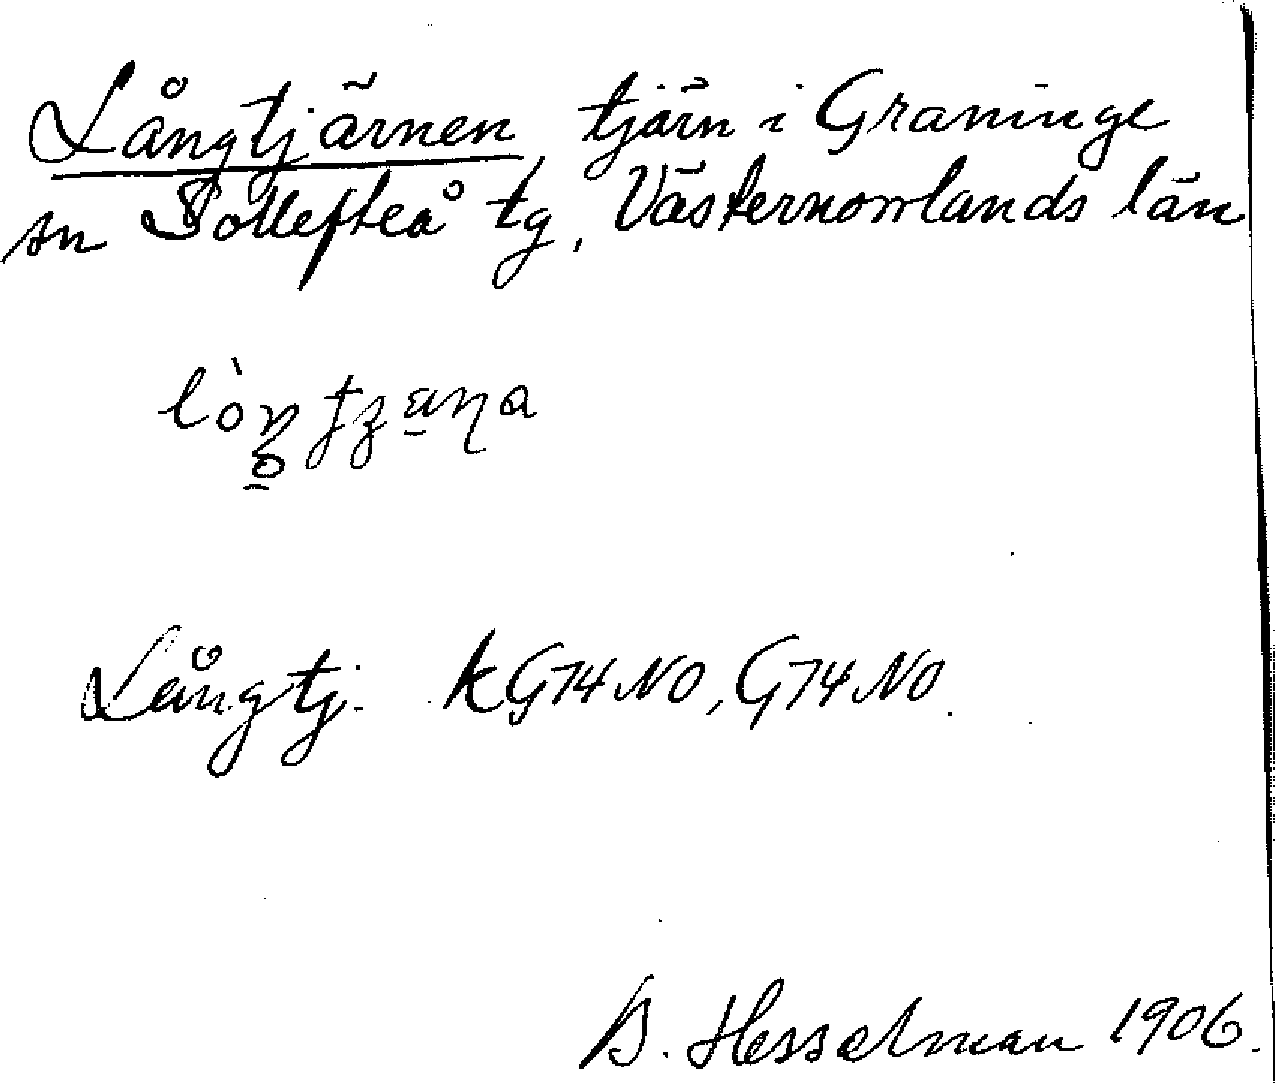 Långtjärnen, tjärn i Graninge
sn Sollefteå tg, Västernorrlands län
Långtj. kG74NO, G74NO.
B. Hesselman 1906.